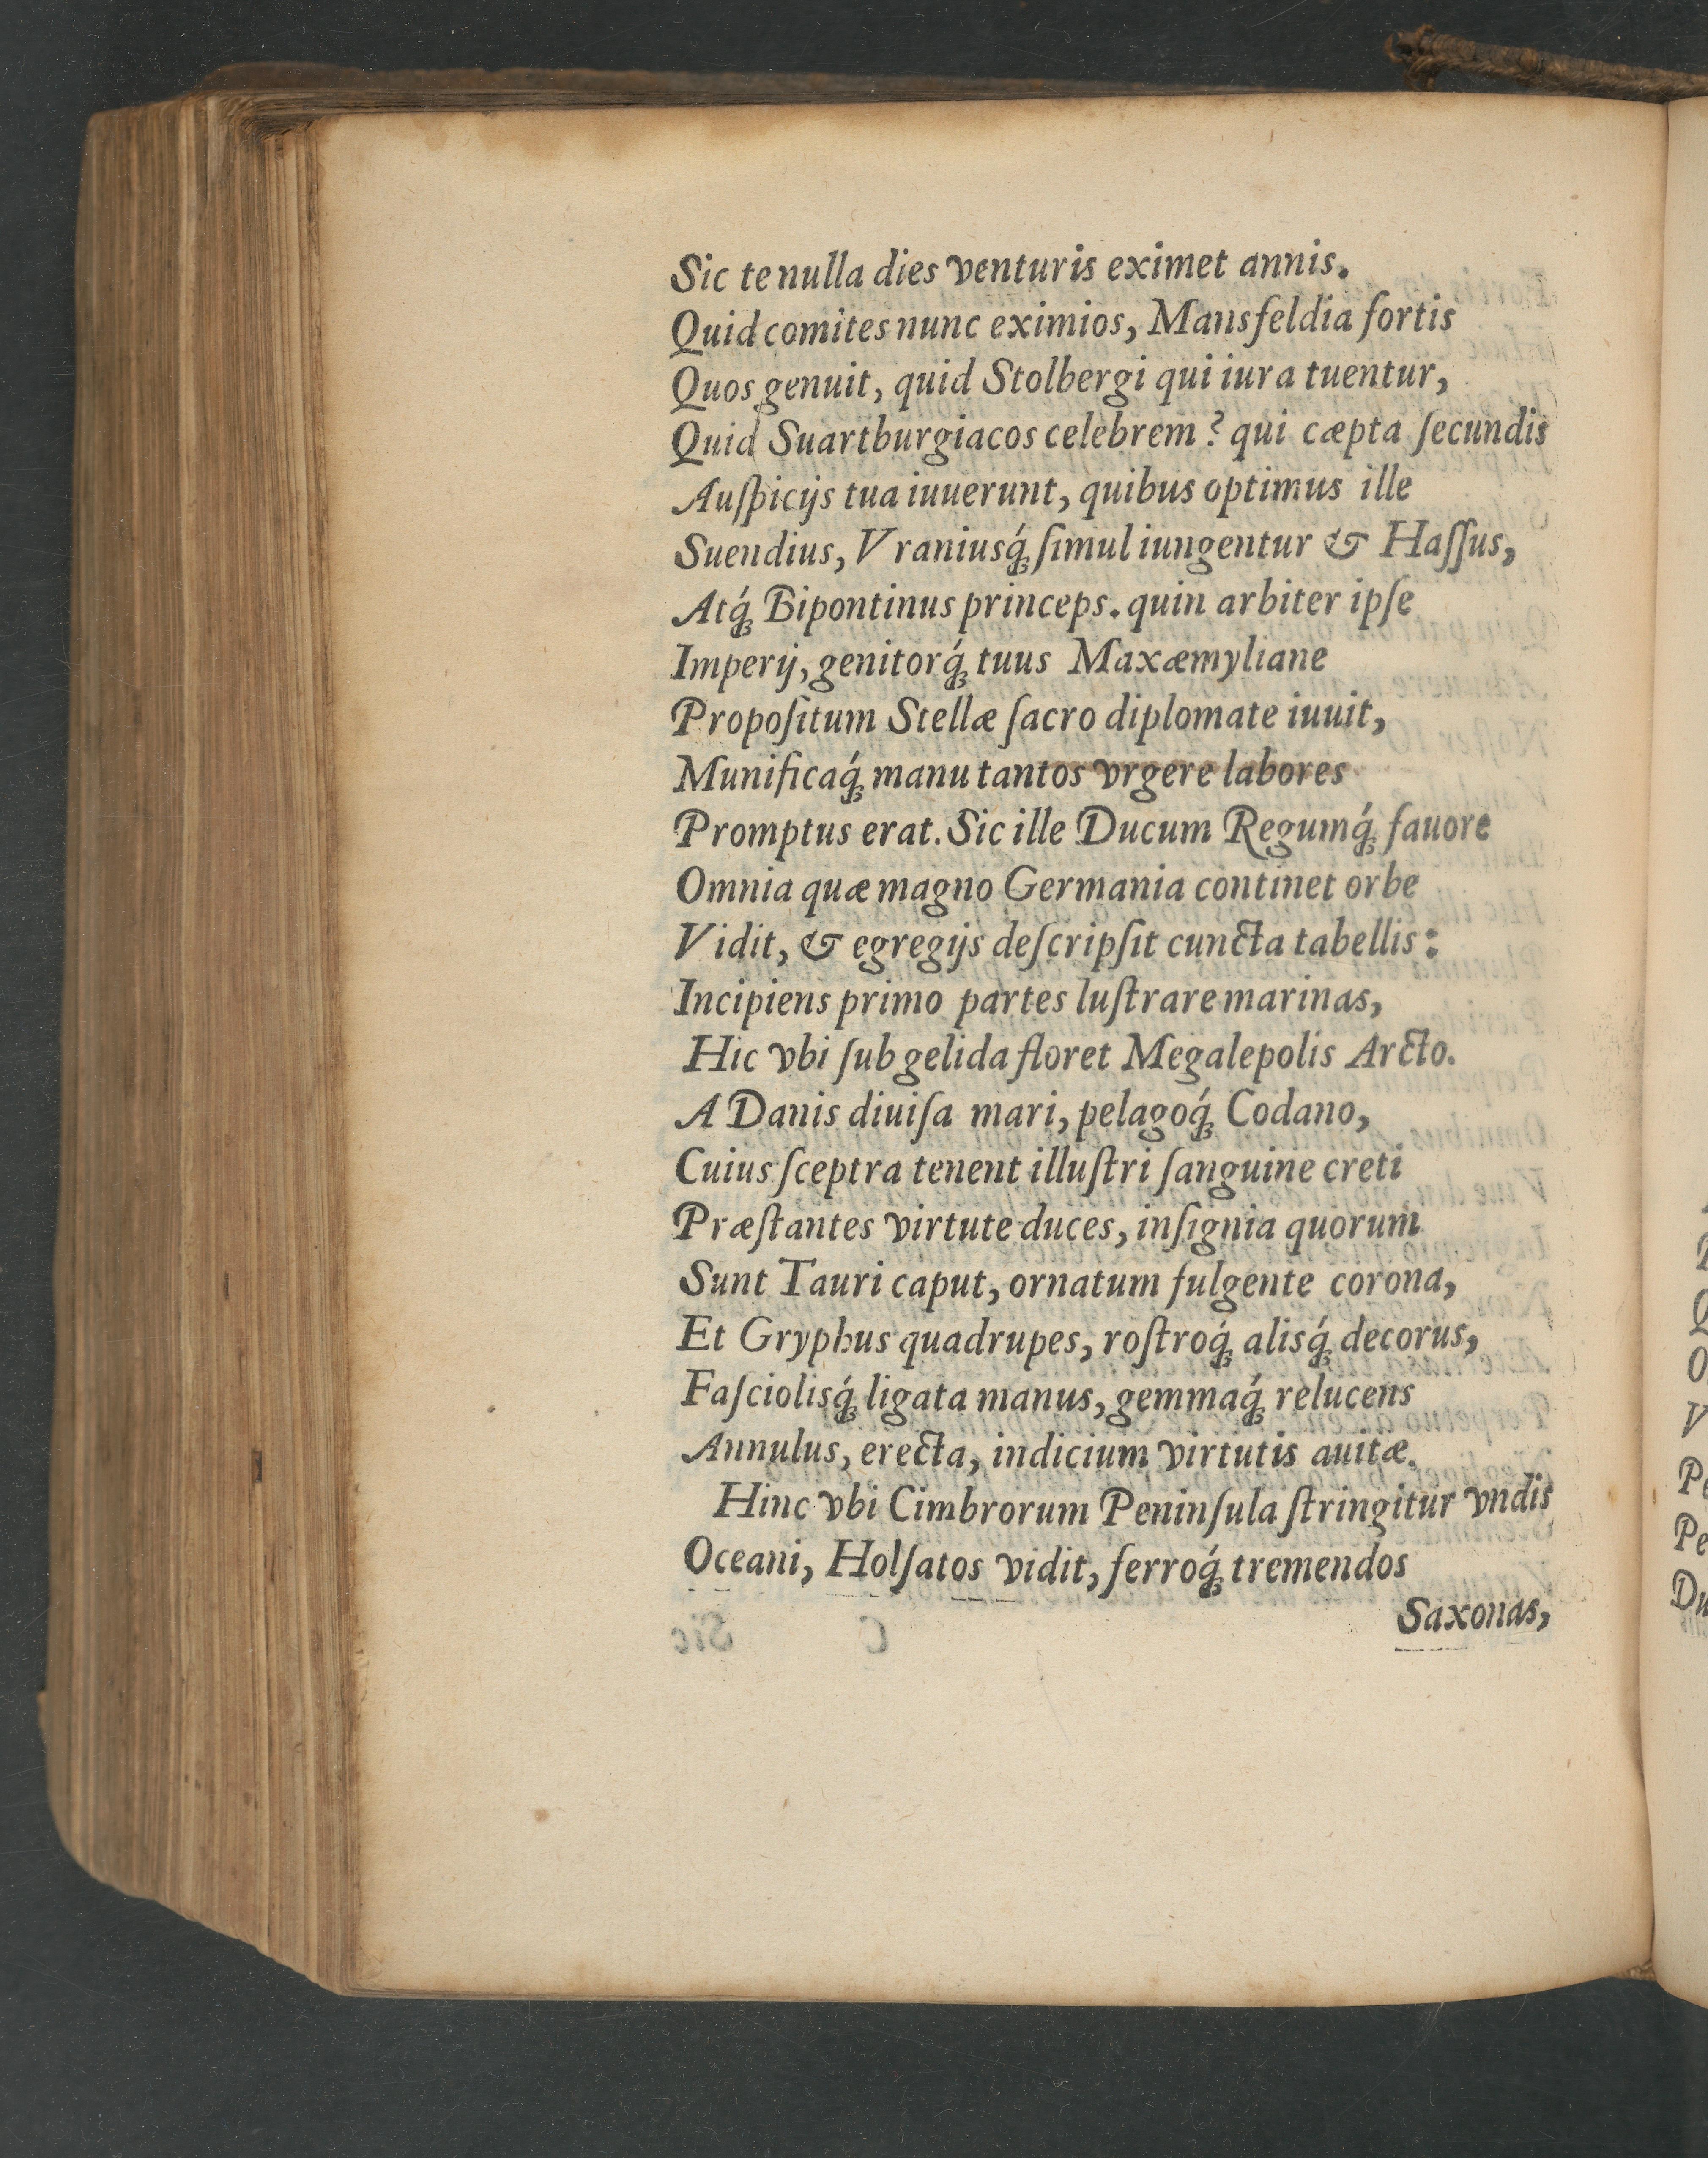 Sic te nulla dies venturis eximet annis.
Quid comites nunc eximios, Mansfeldia fortis
Quos genuit, quid Stolbergi qui iura tuentur,
Quid Suartburgiacos celebrem? qui cæpta ſecundis
Auſpicijs tua iuuerunt, quibus optimus ille
Suendius, Vraniusq́ꝫ ſimul iungentur & Haſſus,
Atq́ꝫ Bipontinus princeps. quin arbiter ipſe
Imperij, genitorq́ꝫ tuus Maxæmyliane
Propoſitum Stellæ ſacro diplomate iuuit,
Munificaq́ꝫ manu tantos vrgere labores
Promptus erat. Sic ille Ducum Regumq́ꝫ fauore
Omnia quæ magno Germania continet orbe
Vidit, & egregijs deſcripſit cuncta tabellis:
Incipiens primo partes luſtrare marinas,
Hic vbi ſub gelida floret Megalepolis Arcto.
A Danis diuiſa mari, pelagoq́ꝫ Codano,
Cuius ſceptra tenent illuſtri ſanguine creti
Præſtantes virtute duces, inſignia quorum
Sunt Tauri caput, ornatum fulgente corona,
Et Gryphus quadrupes, roſtroq́ꝫ alisq́ꝫ decorus,
Faſciolisq́ꝫ ligata manus, gemmaq́ꝫ relucens
Annulus, erecta, indicium virtutis auitæ.
Hinc vbi Cimbrorum Peninſula ſtringitur vndis
Oceani, Holſatos vidit, ferroq́ꝫ tremendos
Saxonas,